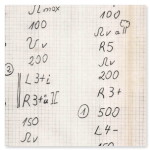 Ωv max
100
Uv
200
② L3+i
R3+aII
150
Ωv
100
Ωv aII
R5
Ωv
200
R3+
① 500
L4-
150